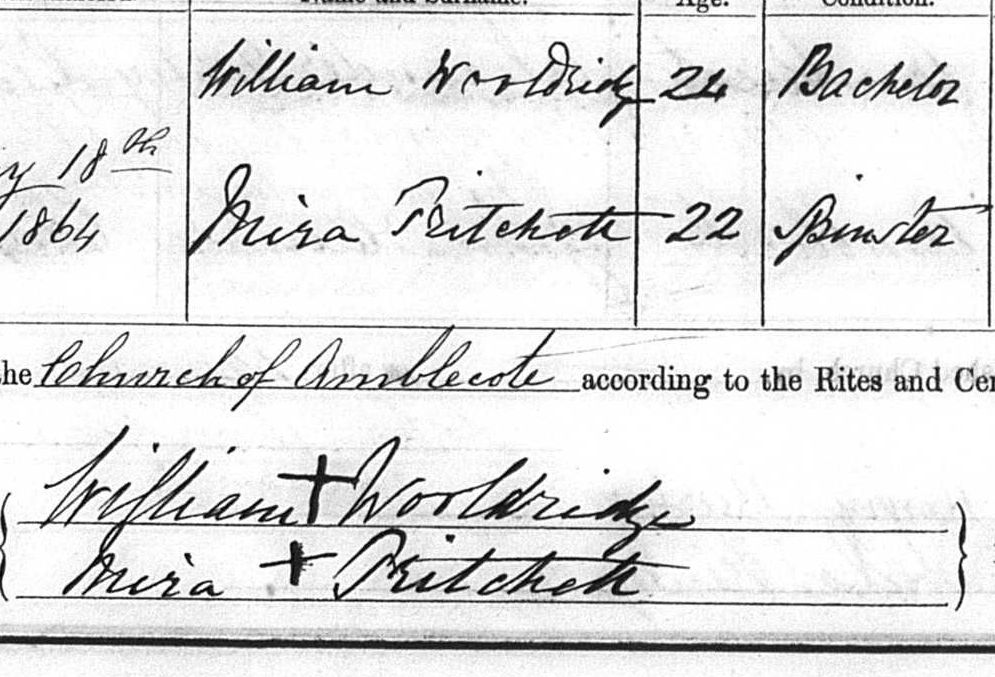 Name and Surname. Age. Condition.
William Wooldridge 24 Bachelor
y 18th
1864 Mira Pritchett 22 Spinster
the Church of Amblecote according to the Rites and Cer
William + Wooldridge
Mira + Pritchett